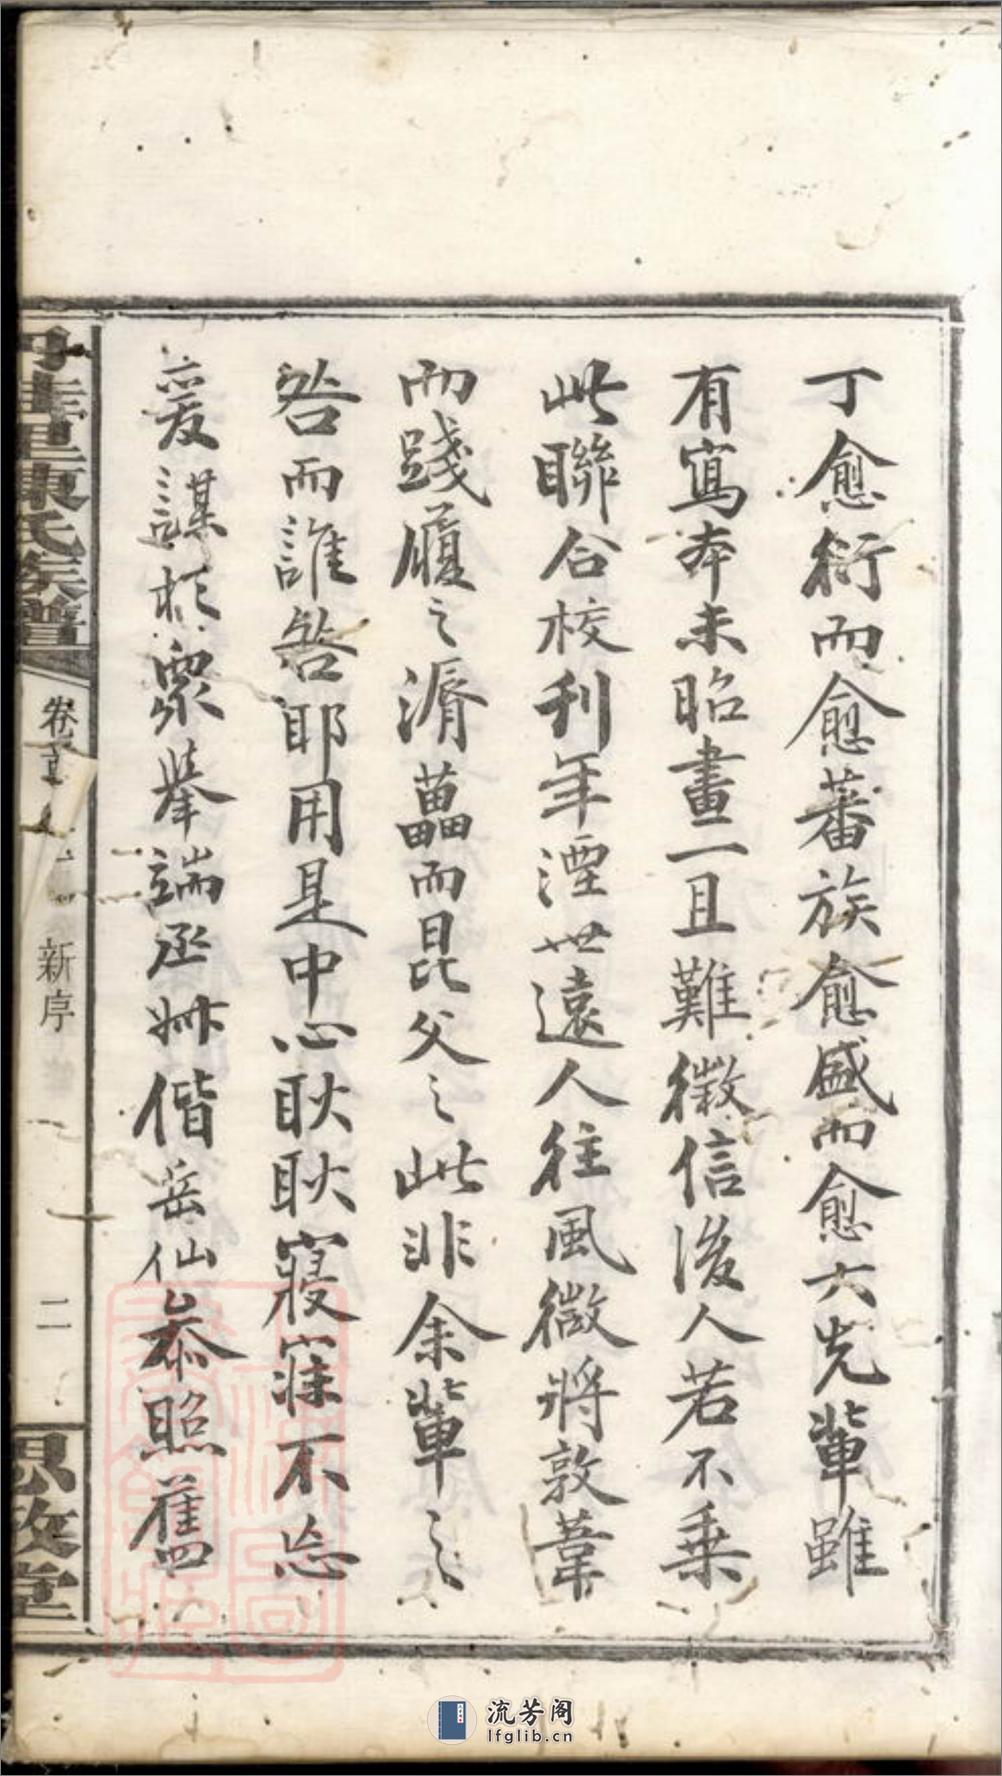 丁愈衍而愈蕃族愈盛而愈大先輩雖
有寫本未昭畫一且難徵信後人若不乗
此聯合校刊年湮世遠人往風微將敦葦
而踐履之滑藟而昆父之此非余輩之
咎而誰咎耶用是中心耿耿寢寐不忘
爰謀於衆舉端丞卅偕岳仙叅照舊
卷首
新序
二
思敬堂
流芳阁
lfglib.cn